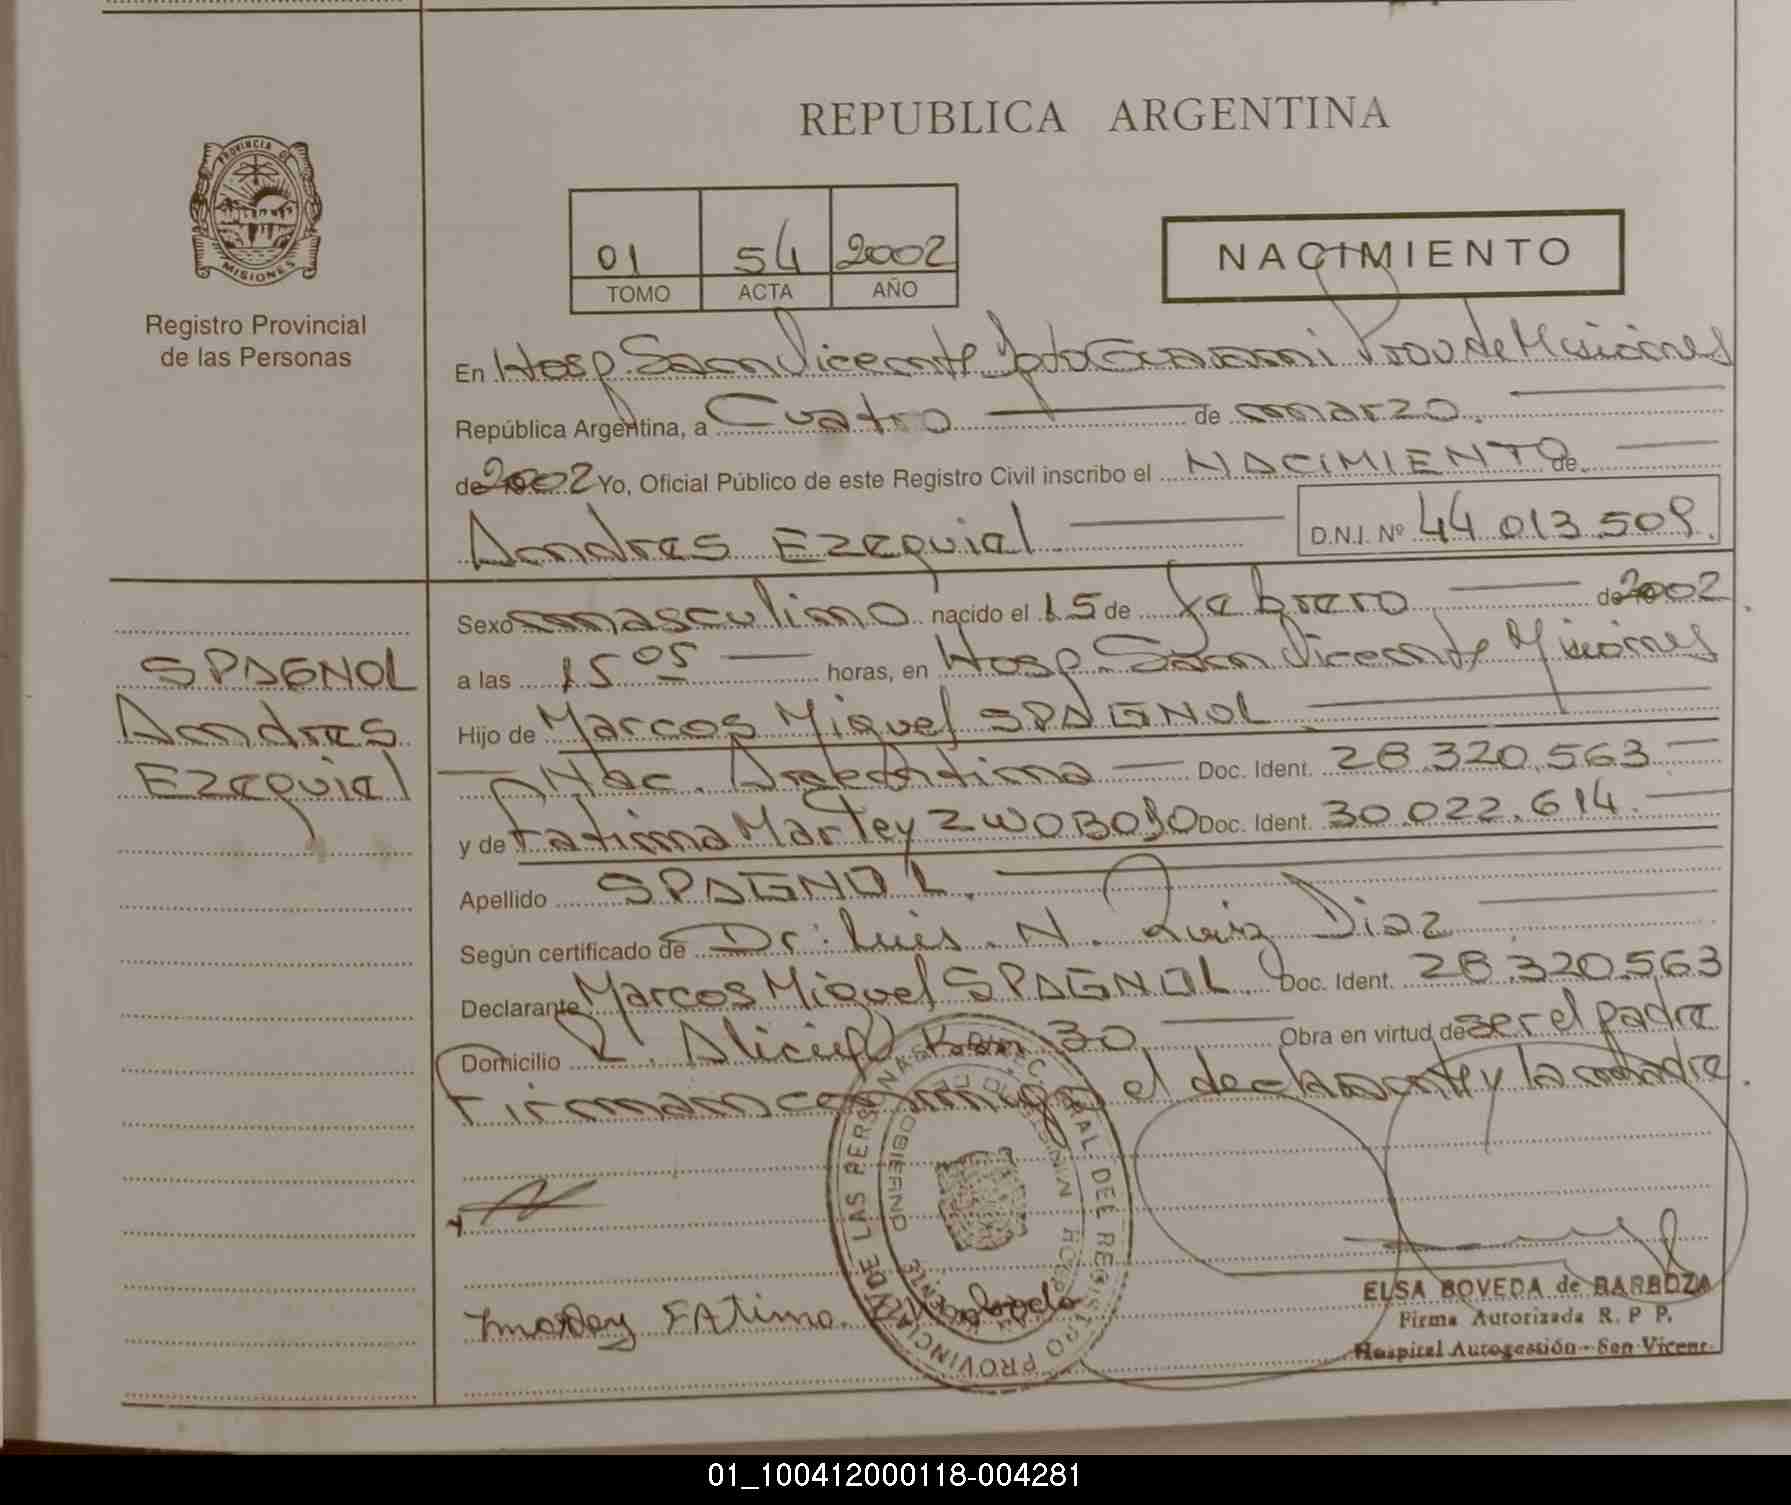 REPUBLICA ARGENTINA
PROVINCIA DE
MISIONES
Registro Provincial
de las Personas
01 54 2002
TOMO ACTA AÑO
NACIMIENTO
En Hosp. San Vicente Dpto Guarani Prov de Misiones
República Argentina, a Cuatro de marzo.
de 2002 Yo, Oficial Público de este Registro Civil inscribo el NACIMIENTO de
Andres Ezequiel D.N.I. Nº 44.013.509.
Sexo masculino nacido el 15 de febrero de 2002
a las 15 05 horas, en Hosp. San Vicente Misiones
Hijo de Marcos Miguel SPAGNOL
Nac. Argentina Doc. Ident. 28.320.563
y de Fatima Marley ZWOBODO Doc. Ident. 30.022.614.
Apellido SPAGNOL.
Según certificado de Dr. Luis N. Ruiz Diaz
Declarante Marcos Miguel SPAGNOL. Doc. Ident. 28.320.563
Domicilio Km 30 Obra en virtud de ser el padre
Firman conmigo el declarante y la madre.
SPAGNOL
Andres
Ezequiel
DE LAS PERSONAS
DEL REGISTRO PROVINCIAL
GOBIERNO
Marley FAtima.
ELSA BOVEDA de BARBOZA
Firma Autorizada R. P P.
Hospital Autogestión - San Vicent.
01_100412000118-004281